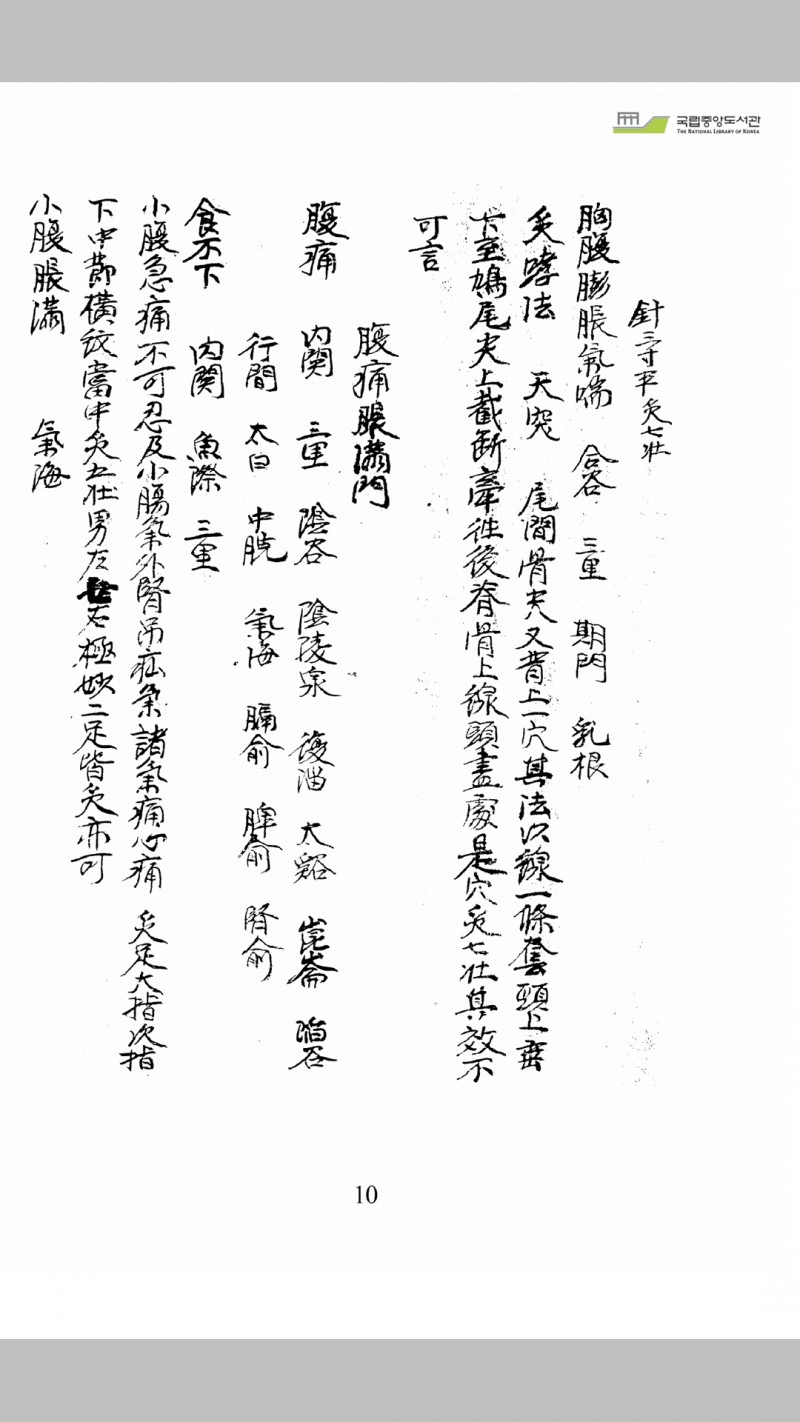 국립중앙도서관
THE NATIONAL LIBRARY OF KOREA
針三寸半灸七壯
胸腹膨脹氣喘 合谷 三里 期門 乳根
灸哮法 天突 尾閭骨尖又背上一穴其法以線一條套頸上垂
下至鳩尾尖上截斷牽往後脊骨上線頭盡處是穴灸七壯其效不
可言
腹痛脹滿門
腹痛 內關 三里 陰谷 陰陵泉 復溜 太谿 崑崙 陷谷
行間 太白 中脘 氣海 膈俞 脾俞 腎俞
食不下 內關 魚際 三里
小腹急痛不可忍及小腸氣外腎吊疝氣諸氣痛心痛 灸足大指次指
下中節橫紋當中灸五壯男左右極妙二足皆灸亦可
小腹脹滿 氣海
10